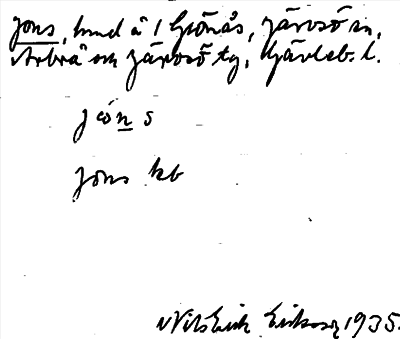 Jons, hmd å 1 Grönås, Järvsö sn,
Arbrå och Järvsö tg, Gävleb. l.
jo͡ns
Jons kb
Nils Erik Eriksson 1935.